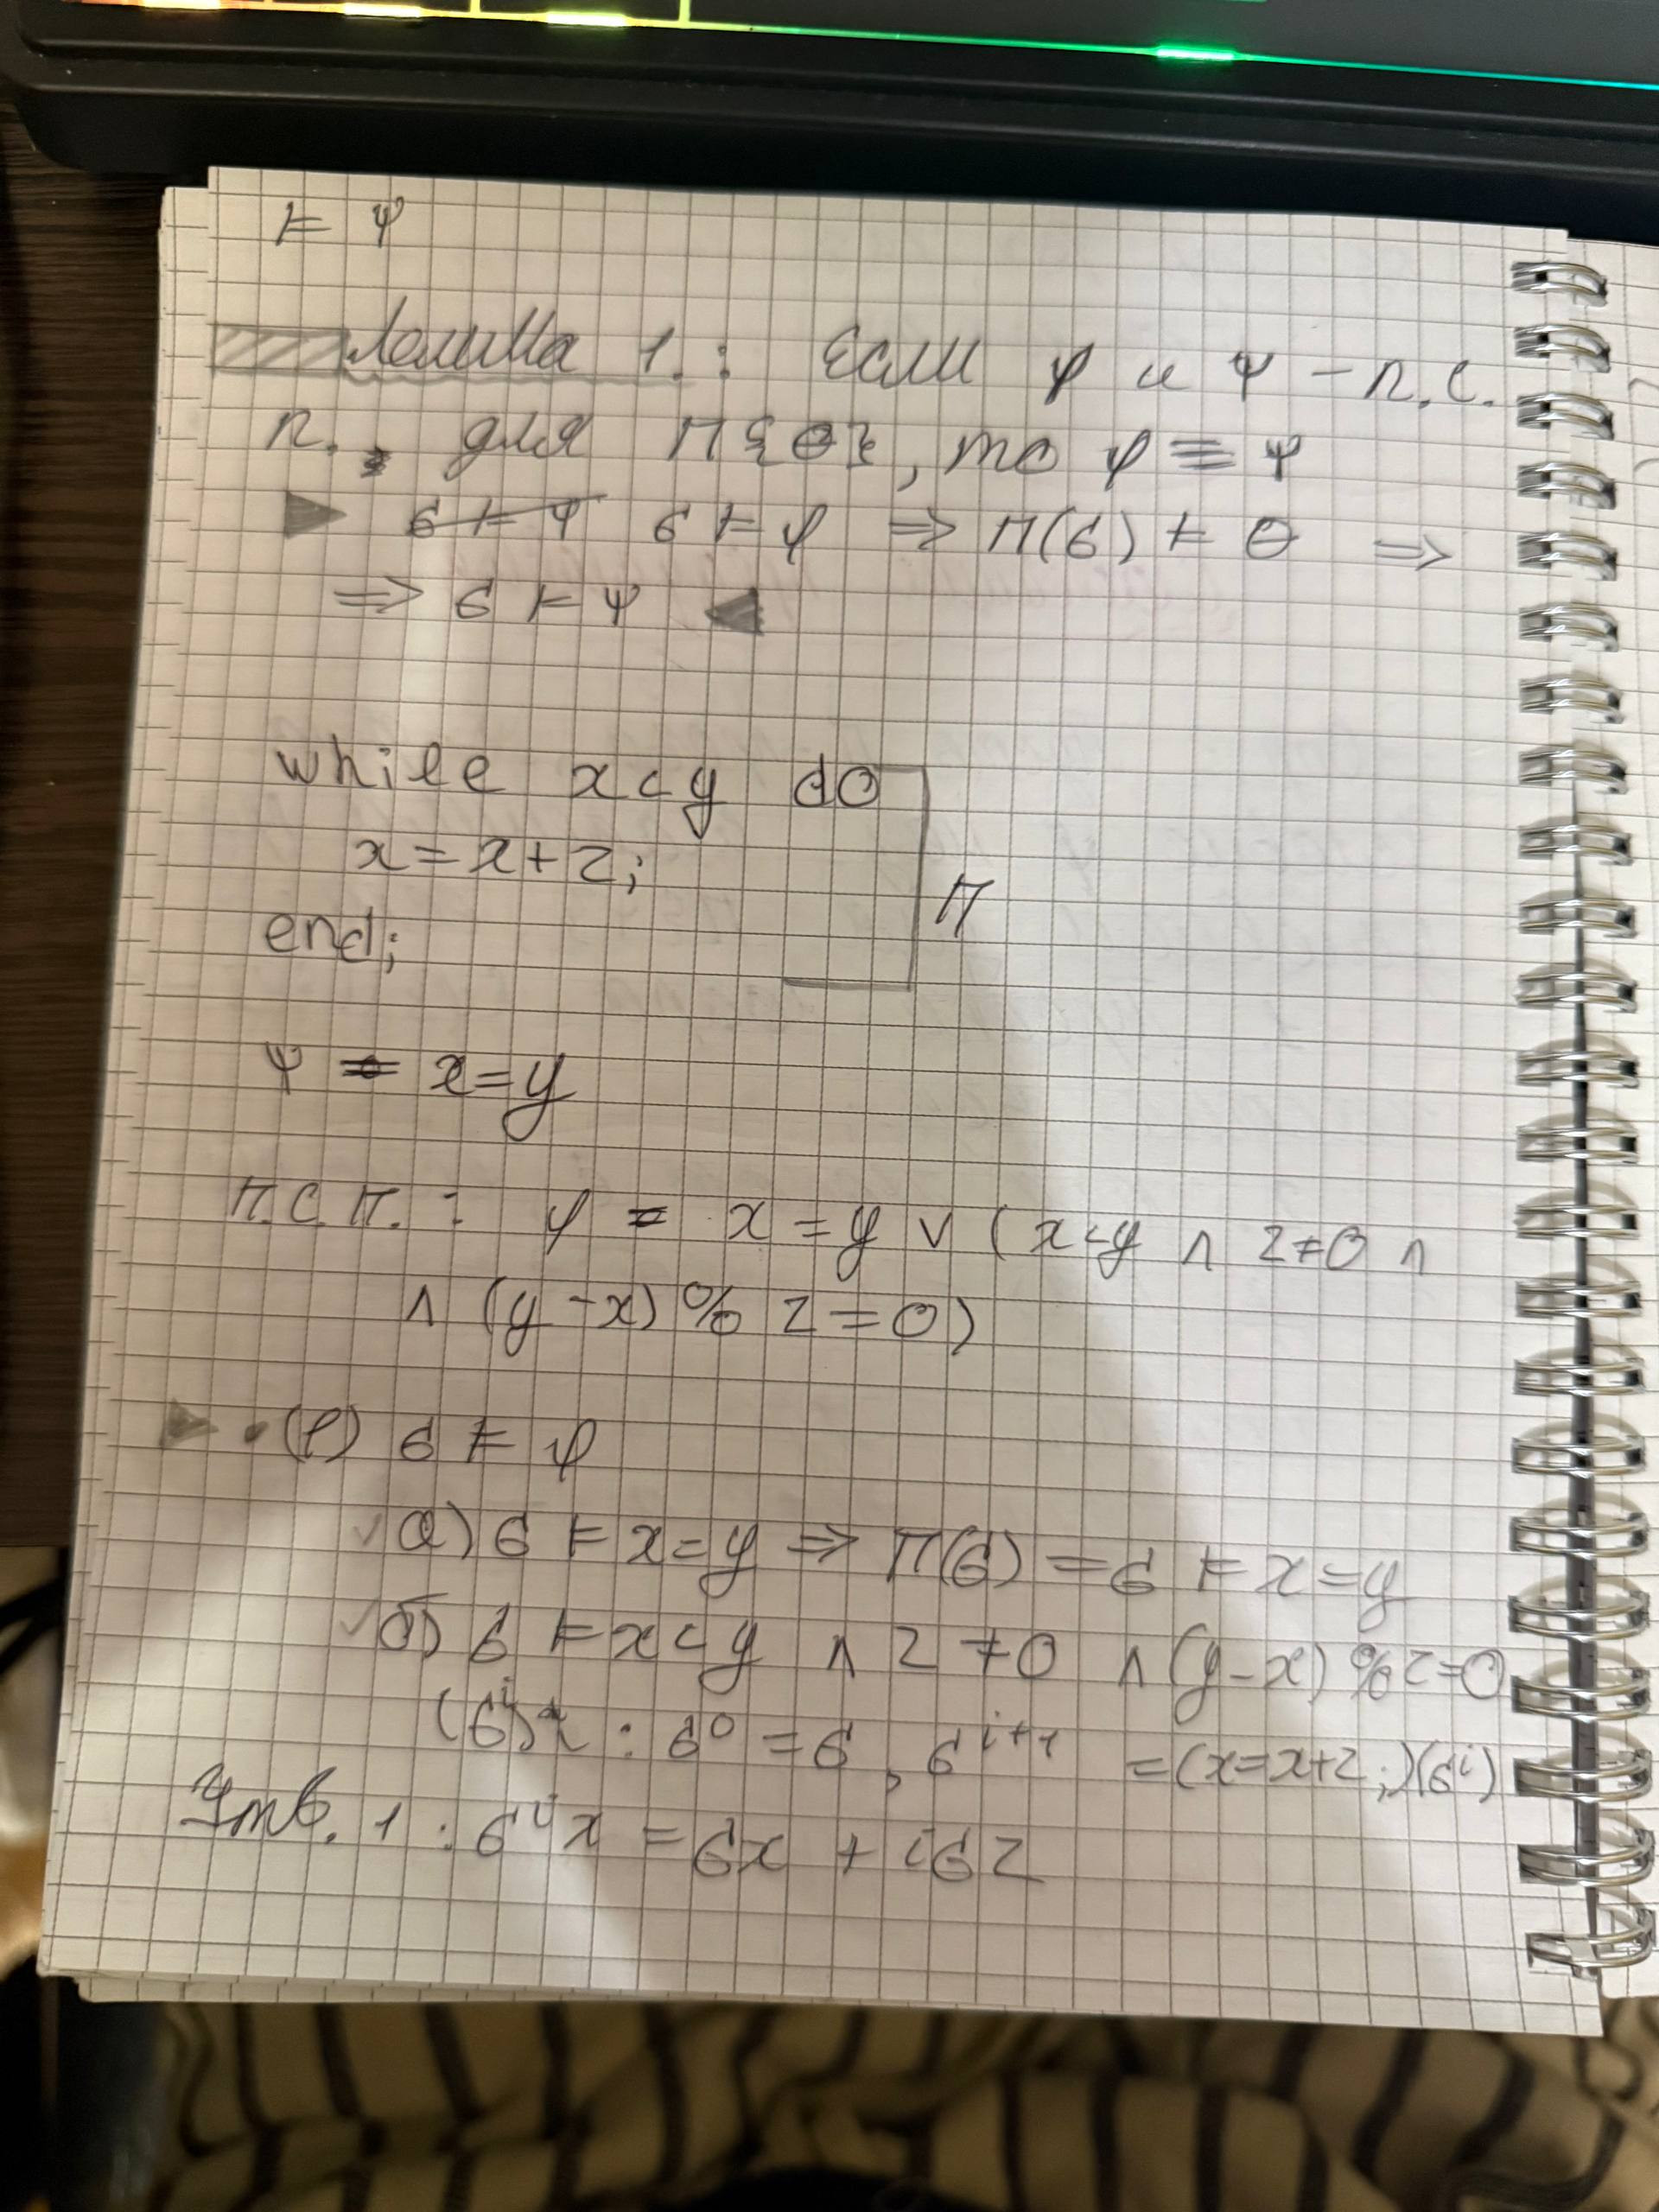 ⊨ ψ
Лемма 1. : Если φ и ψ – п.с.
п. для П{θ}, то φ ≡ ψ
▶ σ ⊨ ψ σ ⊨ φ ⇒ П(σ) ⊨ θ ⇒
⇒ σ ⊨ ψ ◀
while x<y do
x=x+z;
end;
П
ψ = x=y
П.С.П. : φ = x=y ∨ (x<y ∧ z≠0 ∧
∧ (y-x) % z=0)
▶ • (1) σ ⊨ φ
✓ а) σ ⊨ x=y ⇒ П(σ) = σ ⊨ x=y
✓ б) σ ⊨ x<y ∧ z≠0 ∧ (y-x) % z=0
: σ⁰ = σ, σⁱ⁺¹ = (x=x+z;)(σⁱ)
Утв. 1 : σⁱx = σx + iσz